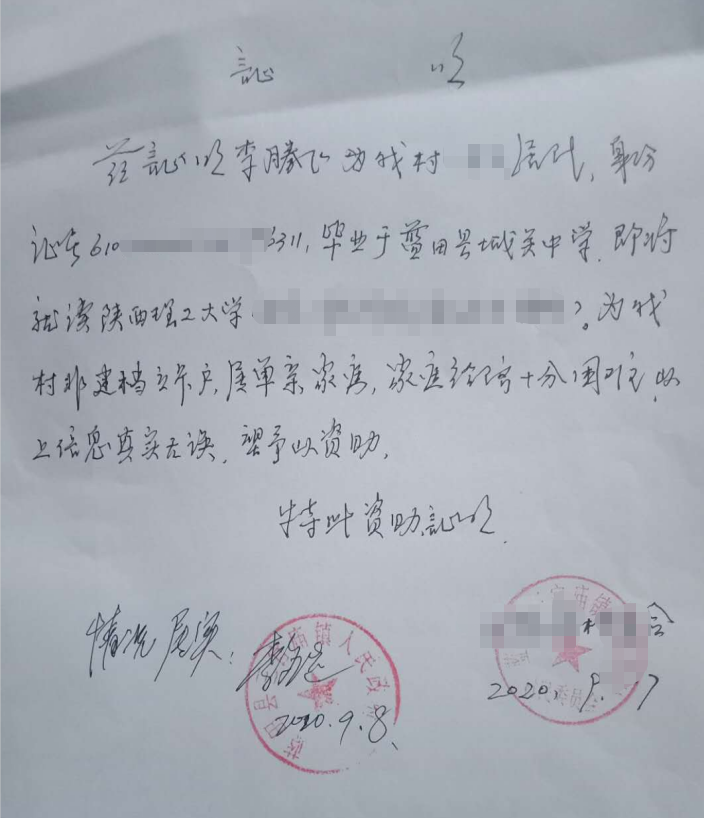 証 明
兹証明李腾飞为我村 居民,身份
证号610 3311,毕业于蓝田县城关中学,即将
就读陕西理工大学( )。为我
村非建档立卡户,属单亲家庭,家庭经济十分困难,以
上信息真实无误,望予以资助。
特此资助証明.
情况属实:
2020.9.8.
村 会
2020.9.7
县 庙镇人民政
庙镇
民委员会